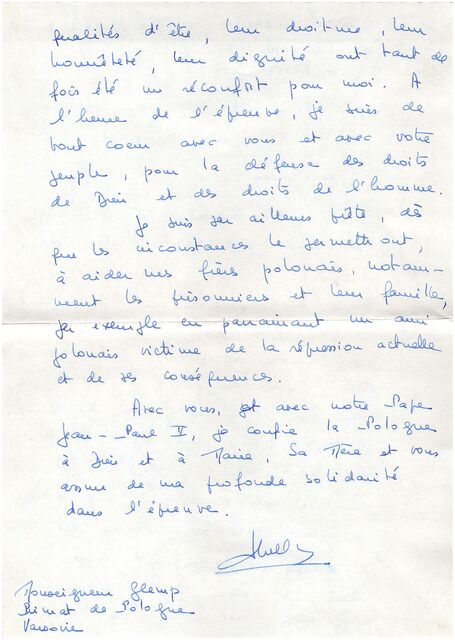 qualités d'être, leur droiture, leur
honnêteté, leur dignité ont tant de
fois été un réconfort pour moi. A
l'heure de l'épreuve, je suis de
tout coeur avec vous et avec votre
peuple, pour la défense des droits
de Dieu et des droits de l'homme.
Je suis par ailleurs prête, dès
que les circonstances le permettront,
à aider mes frères polonais, notam-
ment les prisonniers et leur famille,
par exemple en parrainant un ami
polonais victime de la répression actuelle
et de ses conséquences.
Avec vous, et avec notre Pape
Jean-Paul II, je confie la Pologne
à Dieu et à Marie, Sa Mère et vous
assure de ma profonde solidarité
dans l'épreuve.
Monseigneur Glemp
Primat de Pologne
Varsovie